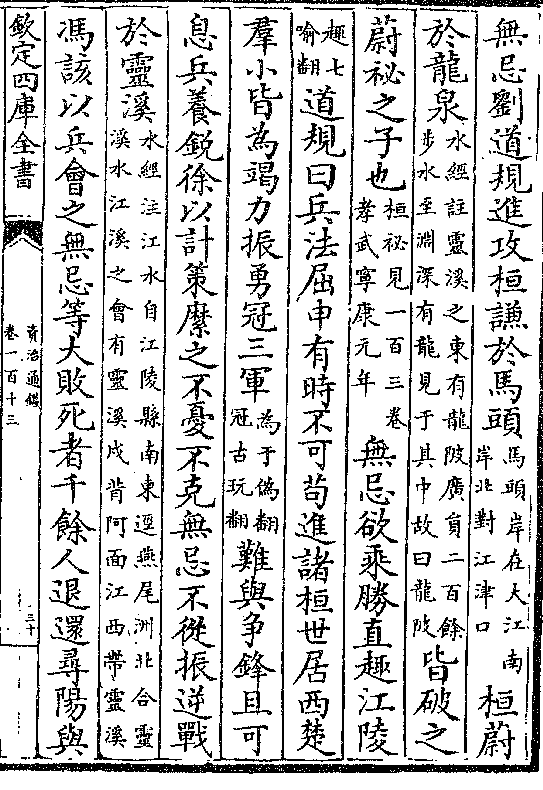 無忌劉道規進攻桓謙於馬頭馬頭岸在大江南岸北對江津口桓蔚
於龍泉水經註靈溪之東有龍陂廣員二百餘步水至淵深有龍見于其中故曰龍陂皆破之
蔚祕之子也桓祕見一百三卷孝武寧康元年無忌欲乘勝直趣江陵
趣七喻翻道規曰兵法屈申有時不可苟進諸桓世居西楚
羣小皆為竭力振勇冠三軍為于偽翻冠古玩翻難與爭鋒且可
息兵養銳徐以計策縻之不憂不克無忌不從振逆戰
於靈溪水經注江水自江陵縣南東逕燕尾洲北合靈溪水江溪之會有靈溪戍背阿面江西帶靈溪
馮該以兵會之無忌等大敗死者千餘人退還尋陽與
欽定四庫全書
資治通鑑
卷一百十三
二十